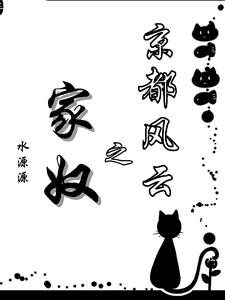 京都风云
之
家奴
水源源